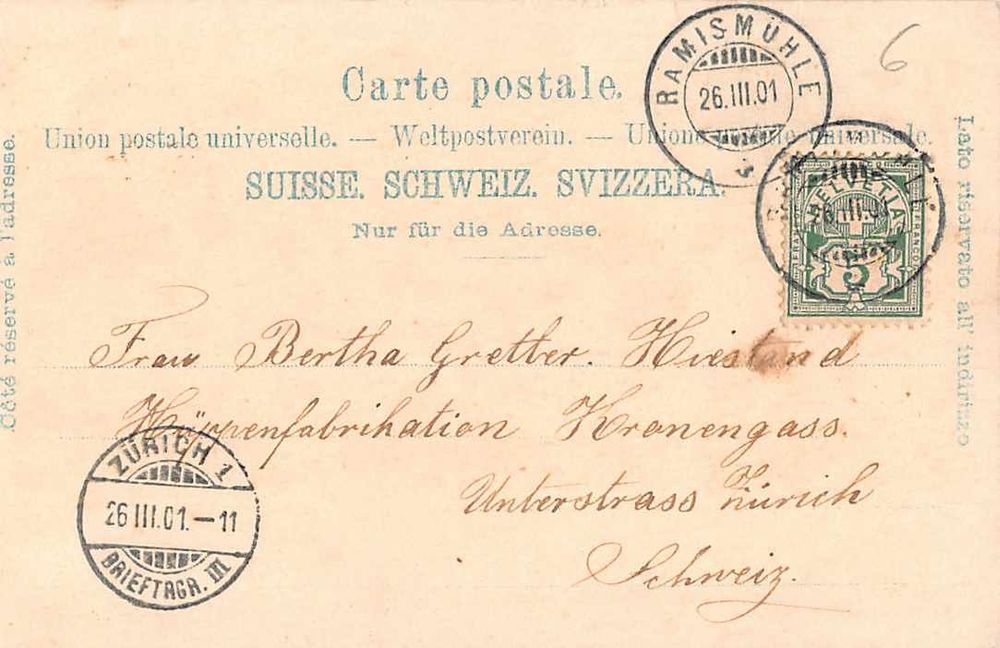 6
RAMISMÜHLE
26.III.01
Carte postale.
Union postale universelle. — Weltpostverein. — Unione postale universale.
SUISSE. SCHWEIZ. SVIZZERA.
Nur für die Adresse.
Côté réservé à l'adresse.
Lato riservato all'indirizzo
HELVETIA
FRANCO
5
Frau Bertha Gretter. Hiestand
Hüppenfabrikation Kronengass.
Unterstrass Zürich
Schweiz.
ZÜRICH 1
26 III.01.–11
BRIEFTRGR. III